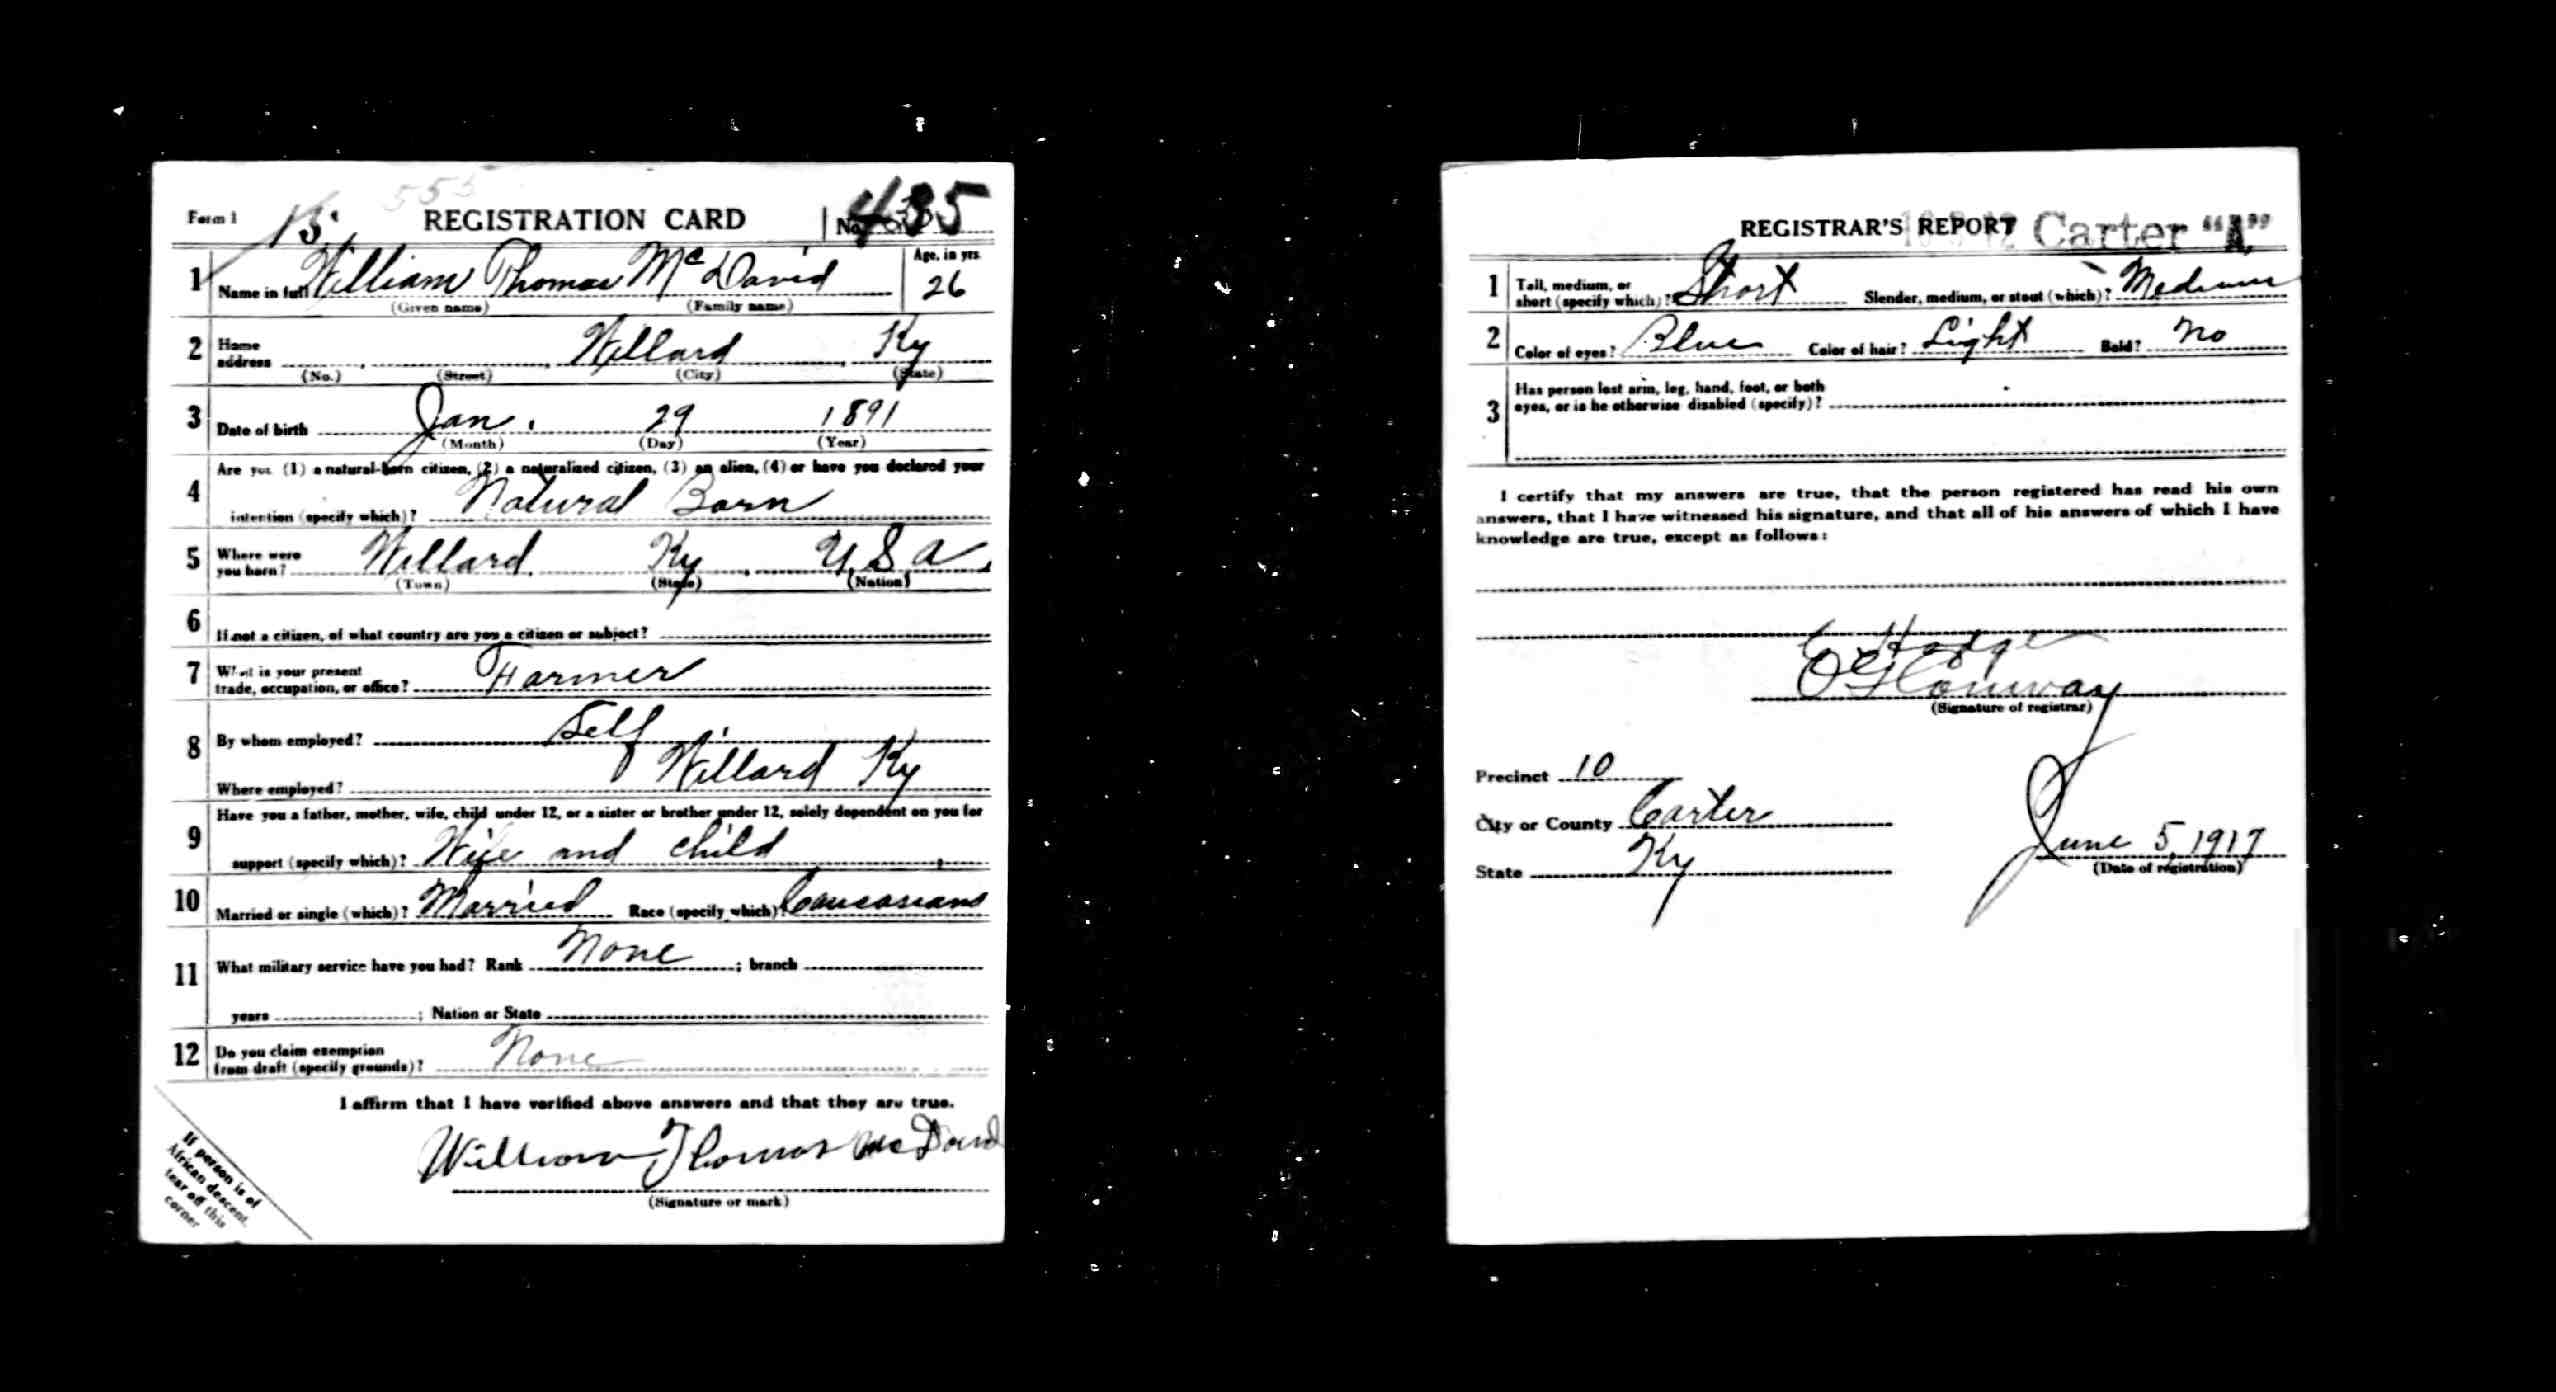 555
Form 1 13 REGISTRATION CARD No. 435
1 Name in full William Thomas McDavid Age, in yrs. 26
(Given name) (Family name)
2 Home address Willard Ky
(No.) (Street) (City) (State)
3 Date of birth Jan. 29 1891
(Month) (Day) (Year)
4 Are you (1) a natural-born citizen, (2) a naturalized citizen, (3) an alien, (4) or have you declared your
intention (specify which)? Natural Born
5 Where were you born? Willard Ky U S A
(Town) (State) (Nation)
6 If not a citizen, of what country are you a citizen or subject?
7 What is your present
trade, occupation, or office? Farmer
8 By whom employed? Self
Where employed? Willard Ky
9 Have you a father, mother, wife, child under 12, or a sister or brother under 12, solely dependent on you for
support (specify which)? Wife and child
10 Married or single (which)? Married Race (specify which)? Caucasians
11 What military service have you had? Rank None ; branch
years ; Nation or State
12 Do you claim exemption
from draft (specify grounds)? None
I affirm that I have verified above answers and that they are true.
William Thomas McDavid
(Signature or mark)
If person is of
African descent,
tear off this
corner
REGISTRAR'S REPORT Carter "A"
1 Tall, medium, or
short (specify which)? Short Slender, medium, or stout (which)? Medium
2 Color of eyes? Blue Color of hair? Light Bald? No
3 Has person lost arm, leg, hand, foot, or both
eyes, or is he otherwise disabled (specify)?
I certify that my answers are true, that the person registered has read his own
answers, that I have witnessed his signature, and that all of his answers of which I have
knowledge are true, except as follows:
Hodge
Conway
(Signature of registrar)
Precinct 10
City or County Carter
State Ky
June 5, 1917
(Date of registration)